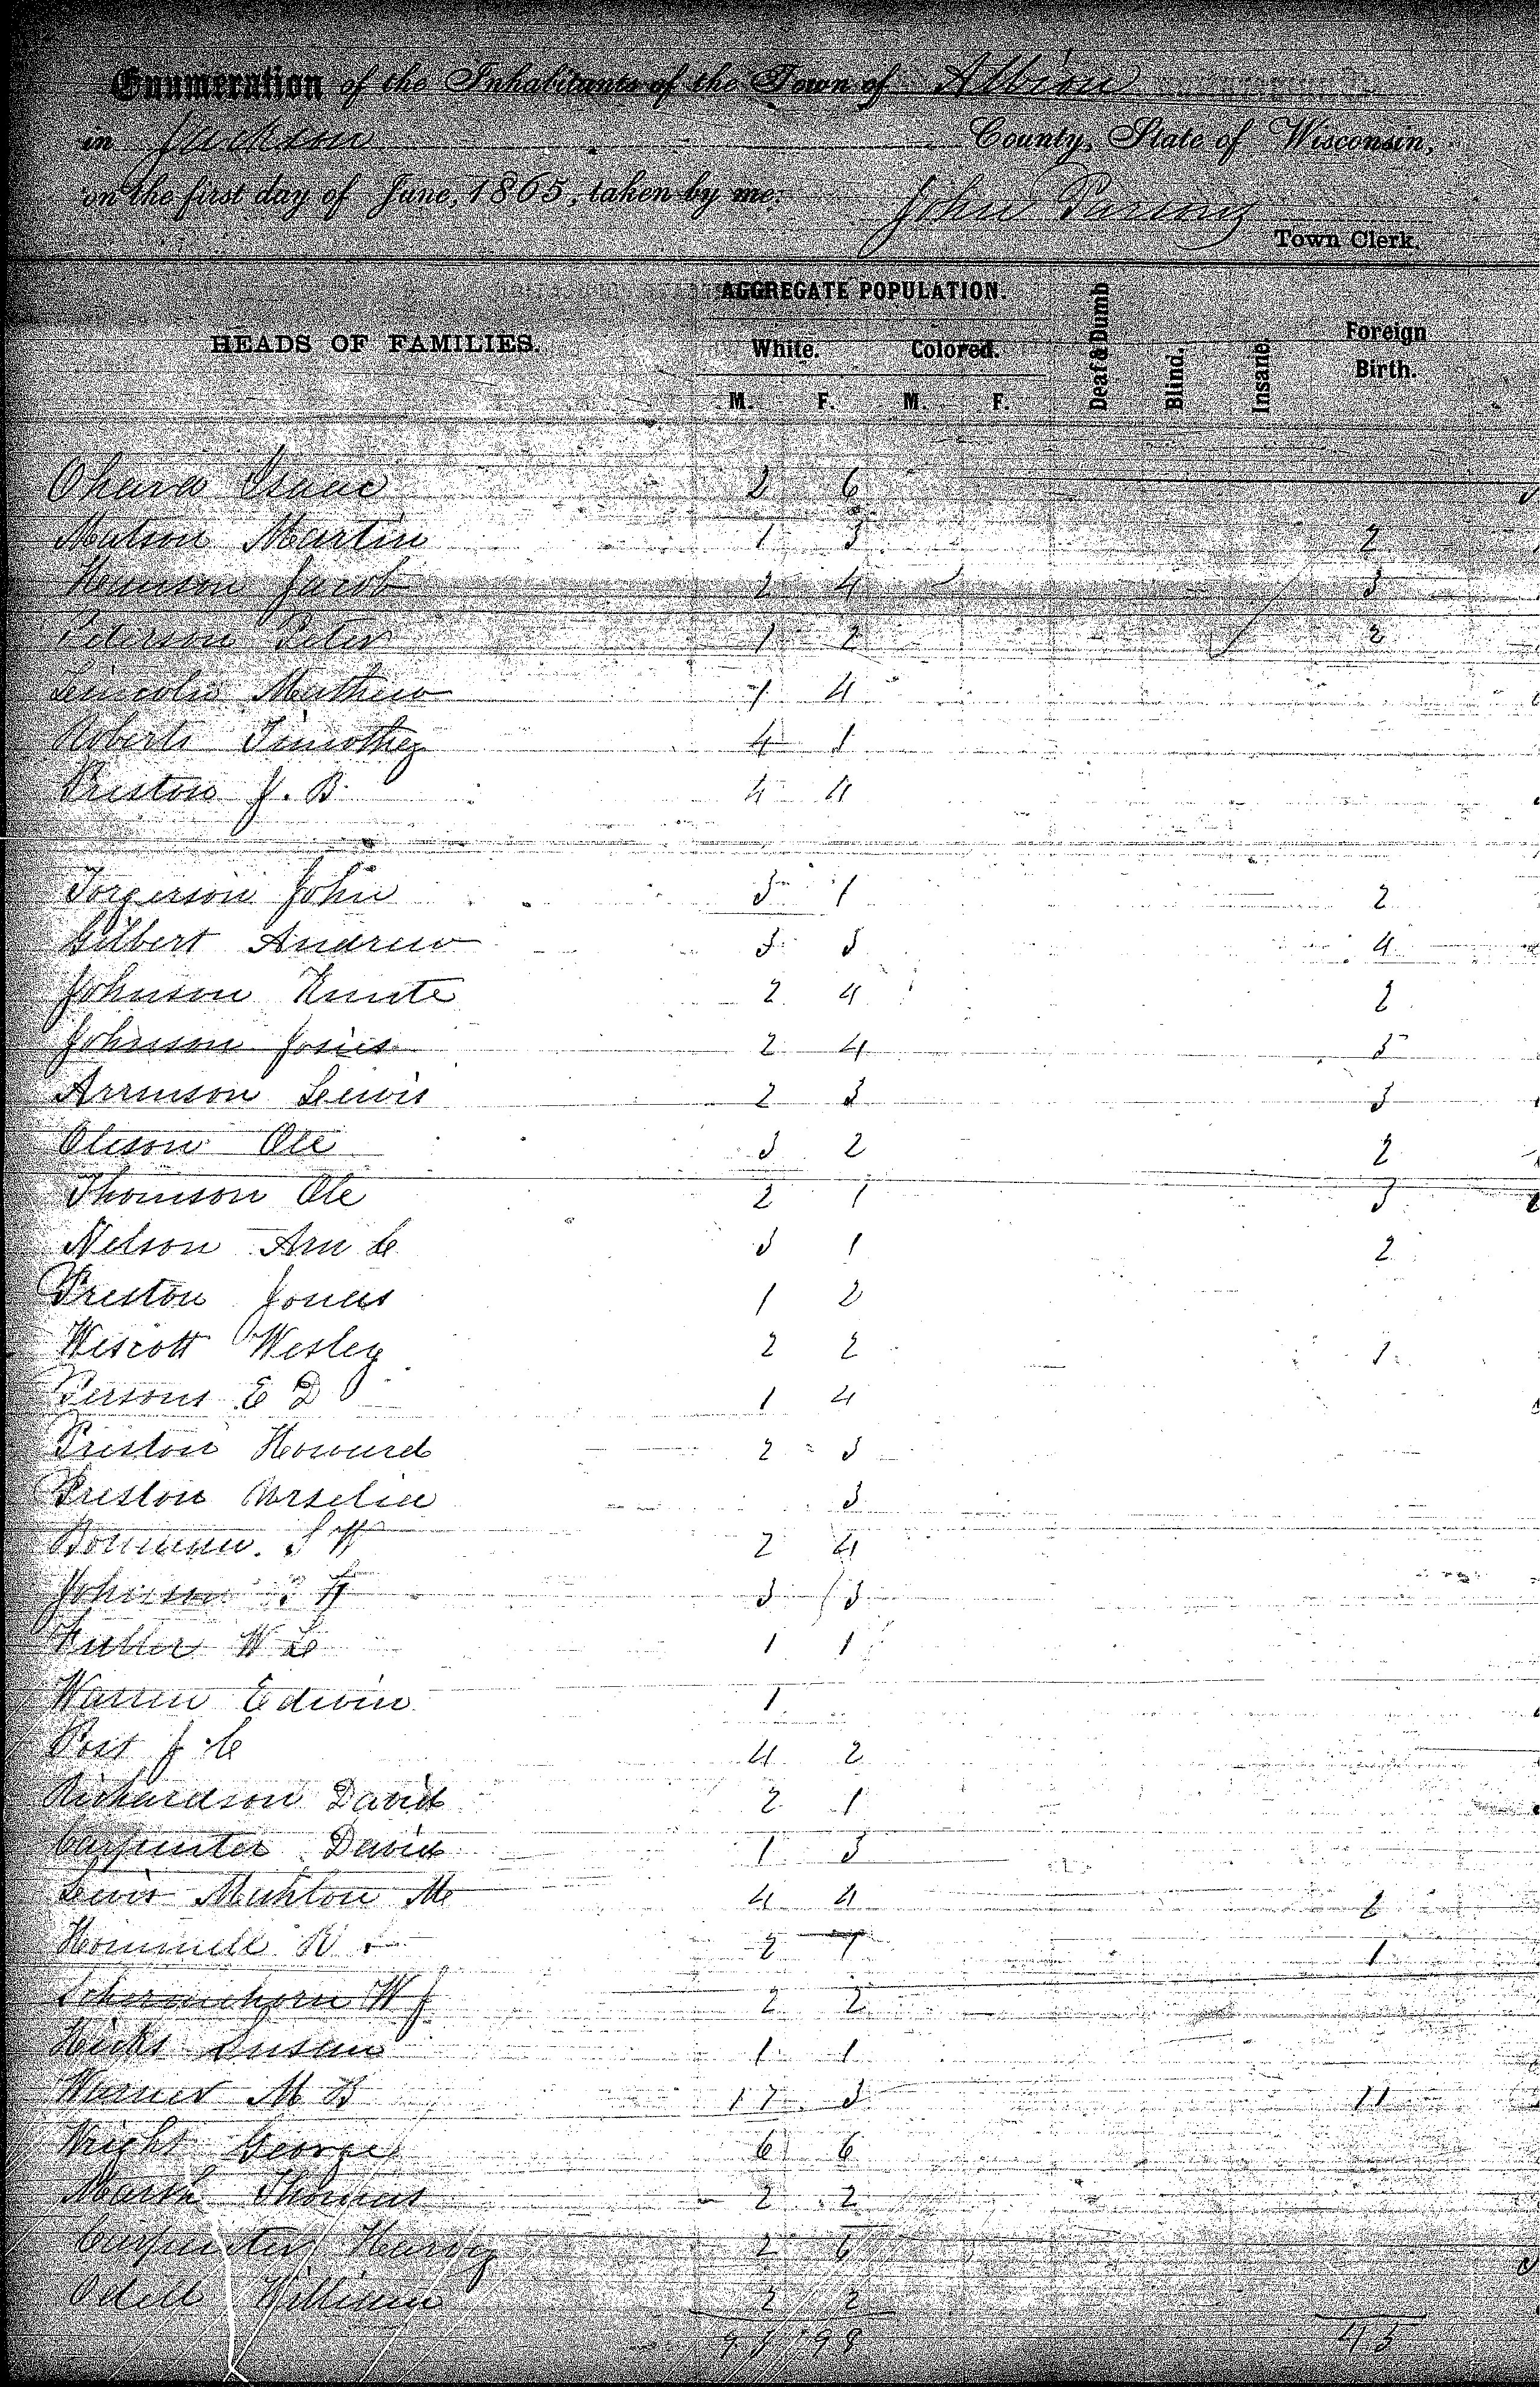 Enumeration of the Inhabitants of the Town of Albion
in Jackson County, State of Wisconsin,
on the first day of June, 1865, taken by me, John Parsons
Town Clerk.
HEADS OF FAMILIES. AGGREGATE POPULATION. White. Colored. Deaf & Dumb Blind. Insane. Foreign Birth.
M. F. M. F.
Ohara Isaac 2 6
Matson Martin 1 3 2
Jacob 2 4 3
Peterson Peter 1 2 2
Linicoln Mathew 1 4
Roberts Timothy 4 1
Preston J. B. 4 4
Torgerson John 3 1 2
Gilbert Andrew 3 3 4
Johnson Knute 2 4 2
Johnson 2 4 3
Lewis 2 3 3
Oleson Ole 3 2 2
Thomson Ole 2 1 3
Nelson 3 1 2
Preston Jonas 1 2
Wescott Wesley 2 2 1
Persons E D 1 4
Preston Howard 2 3
Preston 3
Bowman S W 2 4
Johnson 3 3
Fuller W L 1 1
Warren Edwin 1
Post J C 4 2
Richardson David 2 1
Carpenter David 1 3
Lewis Mahlon M 4 4 2
Hommell R 2 1
Schermehorn W J 2 2
Hicks Susan 1 1
Warner M B 17 3 11
Wright George 6 6
Marsh Thomas 2 2
Carpenter Harvey 2 6
Odell William 2 2
93 98 45